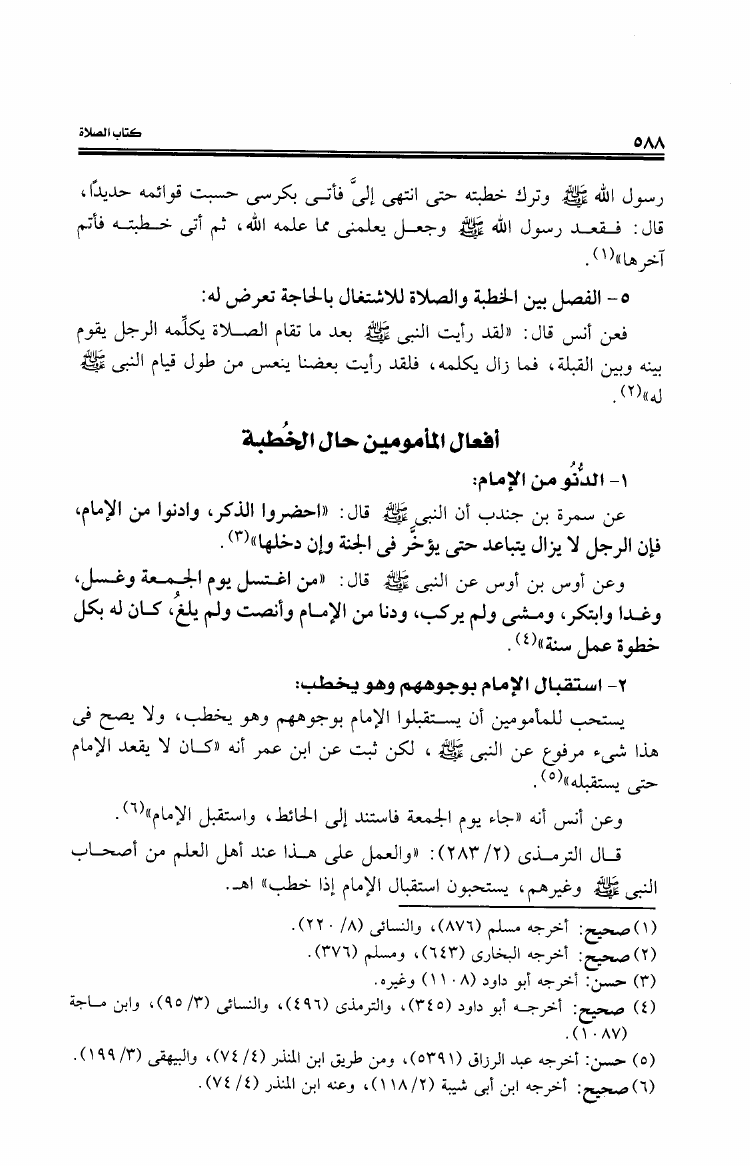 ٥٨٨
كتاب الصلاة
رسول الله ﷺ وترك خطبته حتى انتهى إلىَّ فأتـى بكرسى حسبت قوائمه حديدًا،
قال: فـقعـد رسول الله ﷺ وجعـل يعلمنى مما علمه الله، ثم أتى خـطبتـه فأتم
آخرها»(١).
٥- الفصل بين الخطبة والصلاة للاشتغال بالحاجة تعرض له:
فعن أنس قال: «لقد رأيت النبى ﷺ بعد ما تقام الصـلاة يكلِّمه الرجل يقوم
بينه وبين القبلة، فما زال يكلمه، فلقد رأيت بعضنا ينعس من طول قيام النبى ﷺ
له»(٢).
أفعال المأمومين حال الخُطبة
١- الدُّنُو من الإمام:
عن سمرة بن جندب أن النبى ﷺ قال: «احضروا الذكر، وادنوا من الإمام،
فإن الرجل لا يزال يتباعد حتى يؤخَّر فى الجنة وإن دخلها»(٣).
وعن أوس بن أوس عن النبى ﷺ قال: «من اغتسل يوم الجـمـعة وغـسل،
وغـدا وابتكر، ومـشى ولم يركب، ودنا من الإمـام وأنصت ولم يلغُ، كـان له بكل
خطوة عمل سنة»(٤).
٢- استقبال الإمام بوجوههم وهو يخطب:
يستحب للمأمومين أن يسـتقبلوا الإمام بوجوههم وهو يخطب، ولا يصح فى
هذا شىء مرفوع عن النبى ﷺ ، لكن ثبت عن ابن عمر أنه «كـان لا يقعد الإمام
حتى يستقبله»(٥).
وعن أنس أنه «جاء يوم الجمعة فاستند إلى الحائط، واستقبل الإمام»(٦).
قـال الترمـذى (٢/ ٢٨٣): «والعمل على هـذا عند أهل العلم من أصحـاب
النبى ﷺ وغيرهم، يستحبون استقبال الإمام إذا خطب» اهـ.
(١) صحيح: أخرجه مسلم (٨٧٦)، والنسائى (٨/ ٢٢٠).
(٢) صحيح: أخرجه البخارى (٦٤٣)، ومسلم (٣٧٦).
(٣) حسن: أخرجه أبو داود (١١٠٨) وغيره.
(٤) صحيح: أخرجـه أبو داود (٣٤٥)، والترمذى (٤٩٦)، والنسائى (٣/ ٩٥)، وابن مـاجة
(١٠٨٧).
(٥) حسن: أخرجه عبد الرزاق (٥٣٩١)، ومن طريق ابن المنذر (٤/ ٧٤)، والبيهقى (٣/ ١٩٩).
(٦) صحيح: أخرجه ابن أبى شيبة (٢/ ١١٨)، وعنه ابن المنذر (٤/ ٧٤).